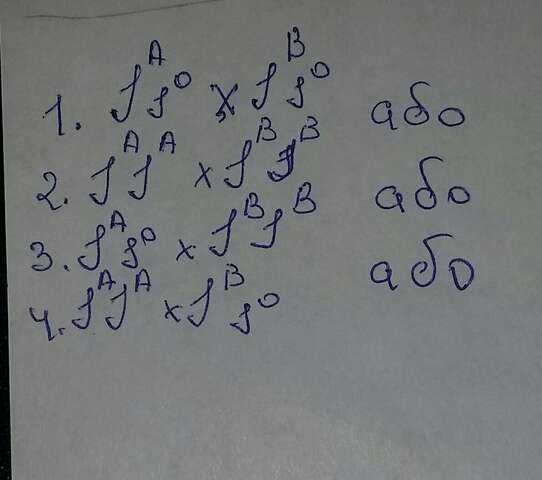 1. I^A I^O x I^B I^O або
2. I^A I^A x I^B I^B або
3. I^A I^O x I^B I^B або
4. I^A I^A x I^B I^O